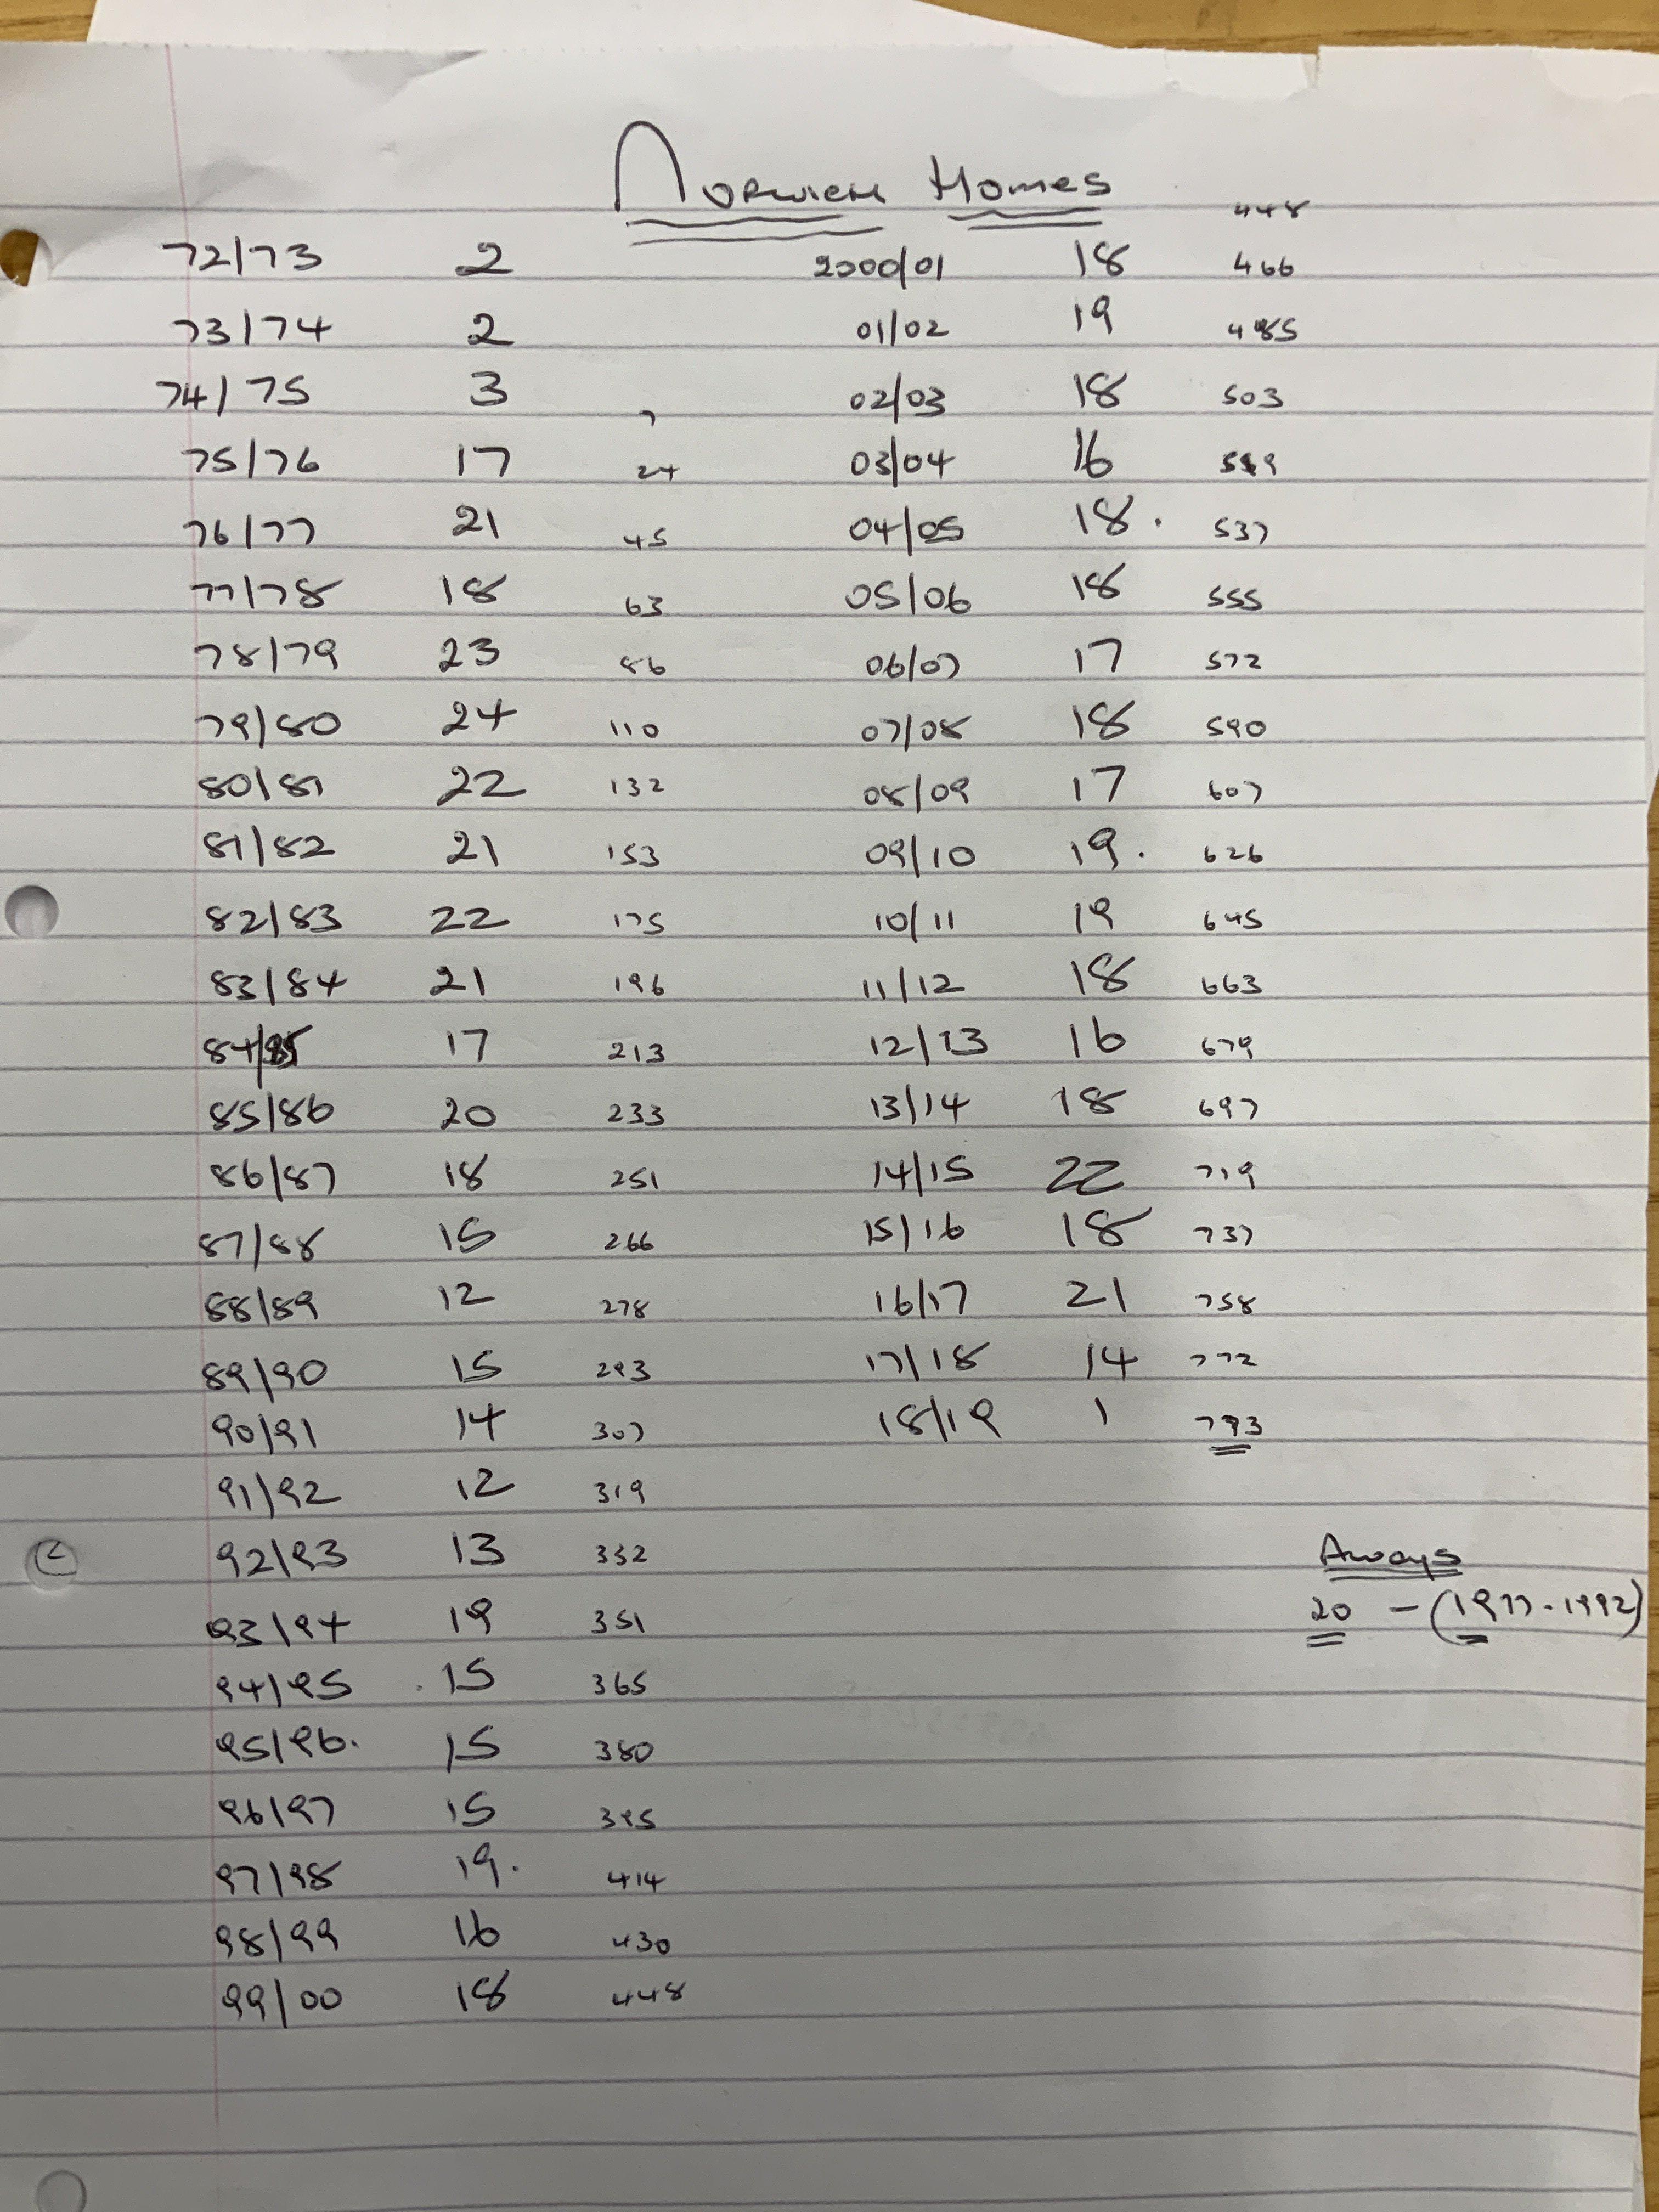 Norwich Homes
448
72/73 2 2000/01 18 466
73/74 2 01/02 19 485
74/75 3 7 02/03 18 503
75/76 17 24 03/04 16 519
76/77 21 45 04/05 18. 537
77/78 18 63 05/06 18 555
78/79 23 86 06/07 17 572
79/80 24 110 07/08 18 590
80/81 22 132 08/09 17 607
81/82 21 153 09/10 19. 626
82/83 22 175 10/11 19 645
83/84 21 196 11/12 18 663
84/85 17 213 12/13 16 679
85/86 20 233 13/14 18 697
86/87 18 251 14/15 22 719
87/88 15 266 15/16 18 737
88/89 12 278 16/17 21 758
89/90 15 293 17/18 14 772
90/91 14 307 18/19 1 793
91/92 12 319
92/93 13 332 Aways
93/94 19 351 20 - (1977-1992)
94/95 . 15 365
95/96. 15 380
96/97 15 395
97/98 19. 414
98/99 16 430
99/00 18 448